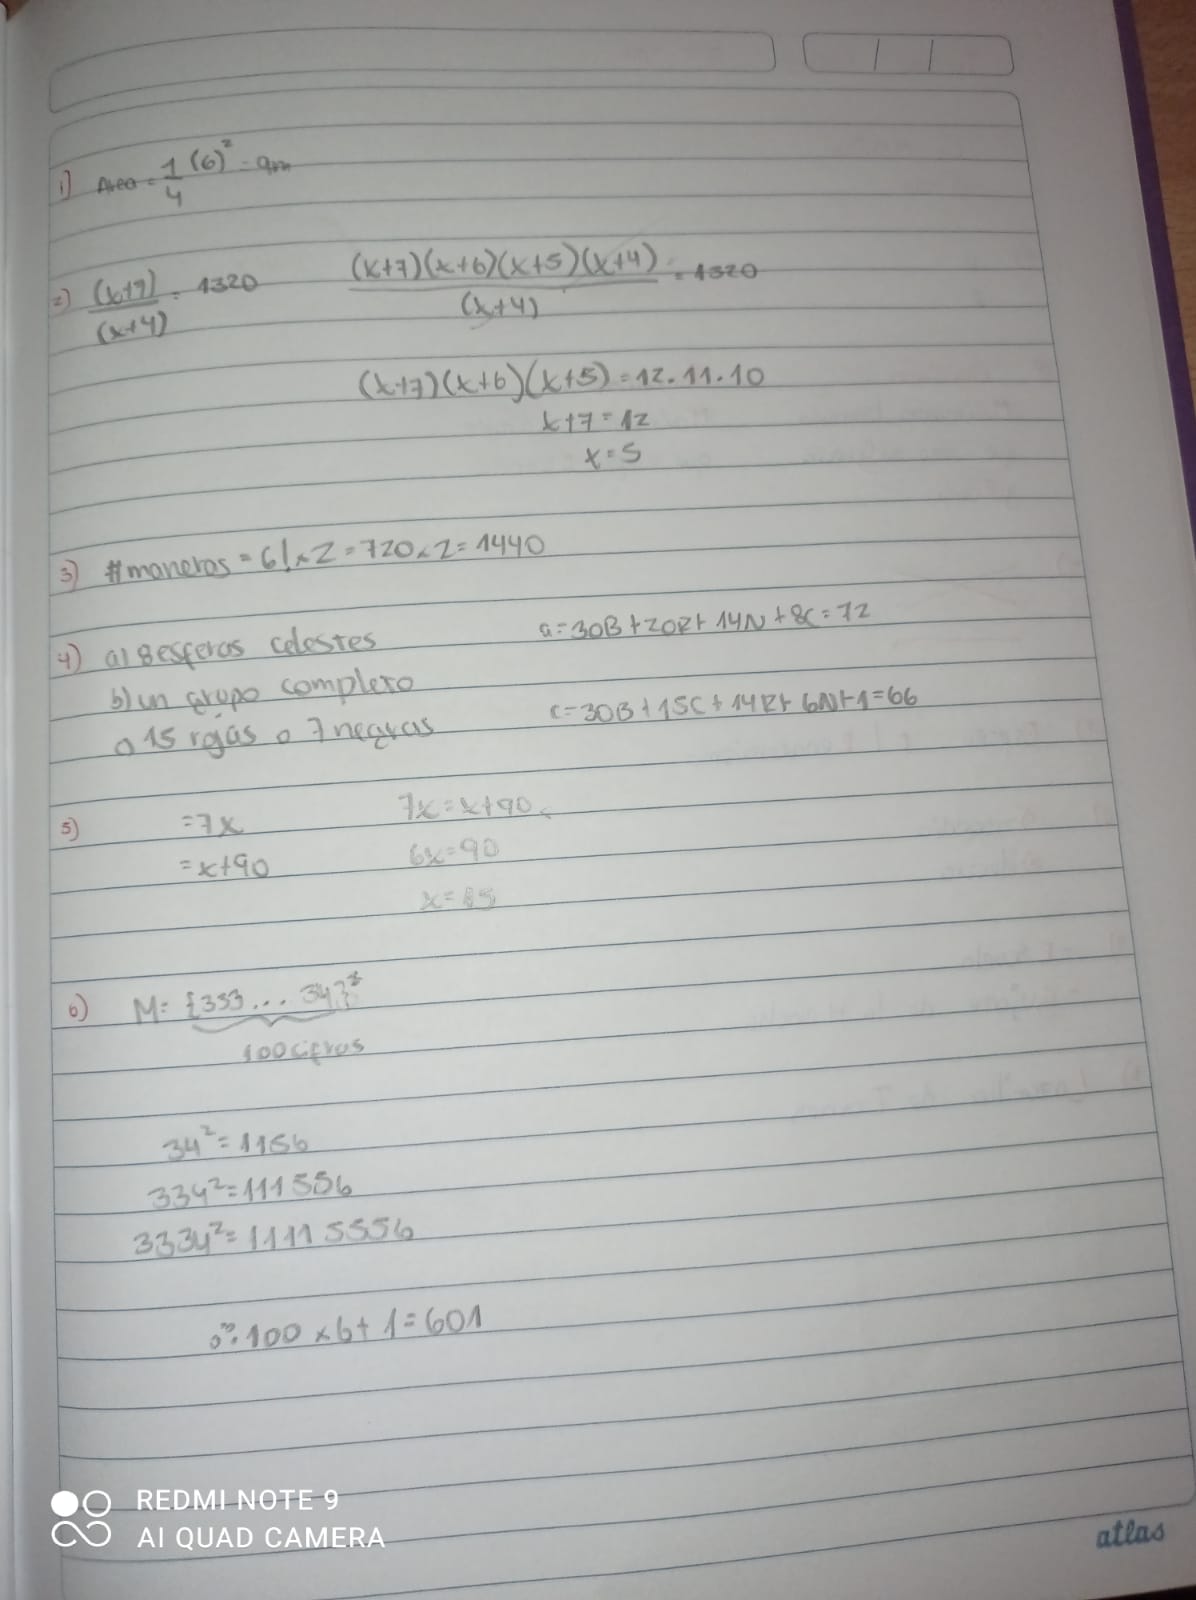 1) Area = 1/4 (6)² = 9m
2) (x+7)/(x+4) = 1320 (x+7)(x+6)(x+5)(x+4)/(x+4) = 1320
(x+7)(x+6)(x+5) = 12.11.10
x+7=12
x=5
3) #maneras = 6! x 2 = 720 x 2 = 1440
4) a) 8 esferas celestes a= 30B + 20R + 14N + 8C = 72
b) un grupo completo
o 15 rojas o 7 negras c= 30B + 15C + 14R + 6N + 1 = 66
5) =7x 7x = x+90
=x+90 6x=90
x=15
6) M= {333... 34}²
100 cifras
34² = 1156
334² = 111556
3334² = 11115556
∴ 100 x 6 + 1 = 601
REDMI NOTE 9
AI QUAD CAMERA
atlas